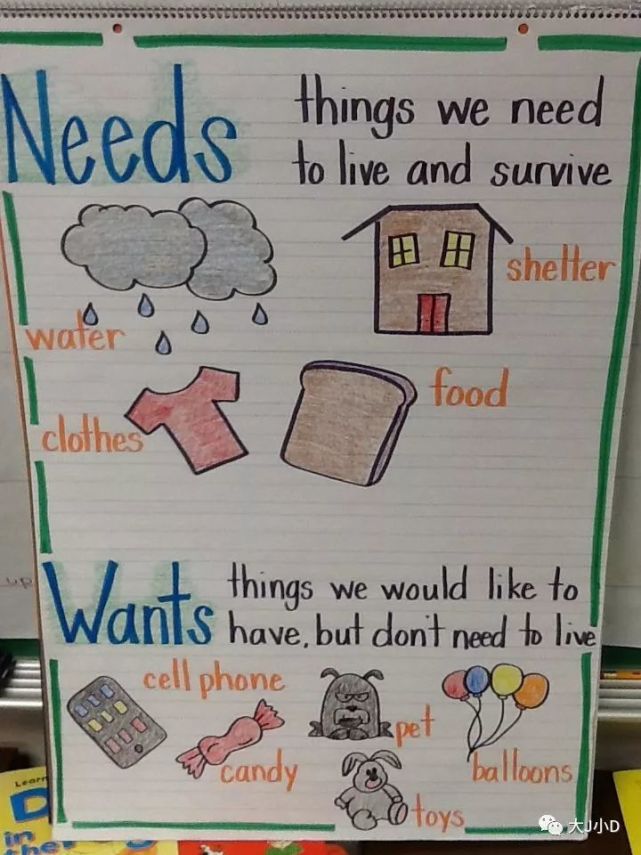 Needs
things we need
to live and survive
water
shelter
clothes
food
Wants
things we would like to
have, but don't need to live
cell phone
candy
pet
balloons
toys
up
Learn
in
the
大J小D